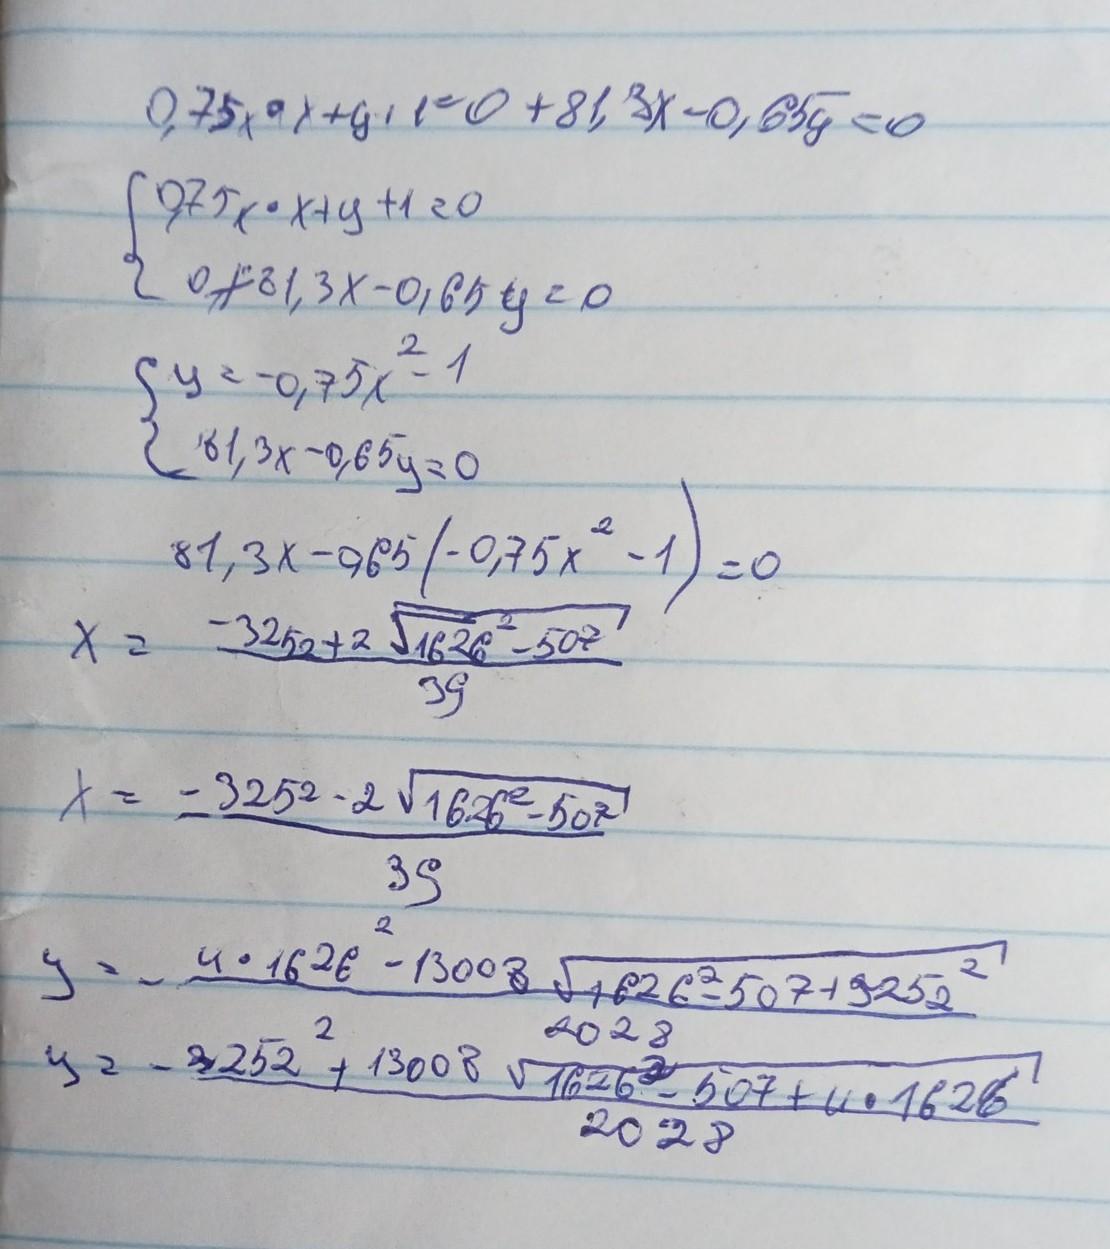 0,75x•x+y+1=0+81,3x-0,65y=0
{0,75x•x+y+1=0
0+81,3x-0,65y=0
{y=-0,75x²-1
81,3x-0,65y=0
81,3x-0,65(-0,75x²-1)=0
x = (-3252+2√(1626²-507))/39
x = (-3252-2√(1626²-507))/39
y = -(4•1626²-13008√(1626²-507+3252²))/2028
y = -(3252²+13008√(1626²-507+4•1626))/2028